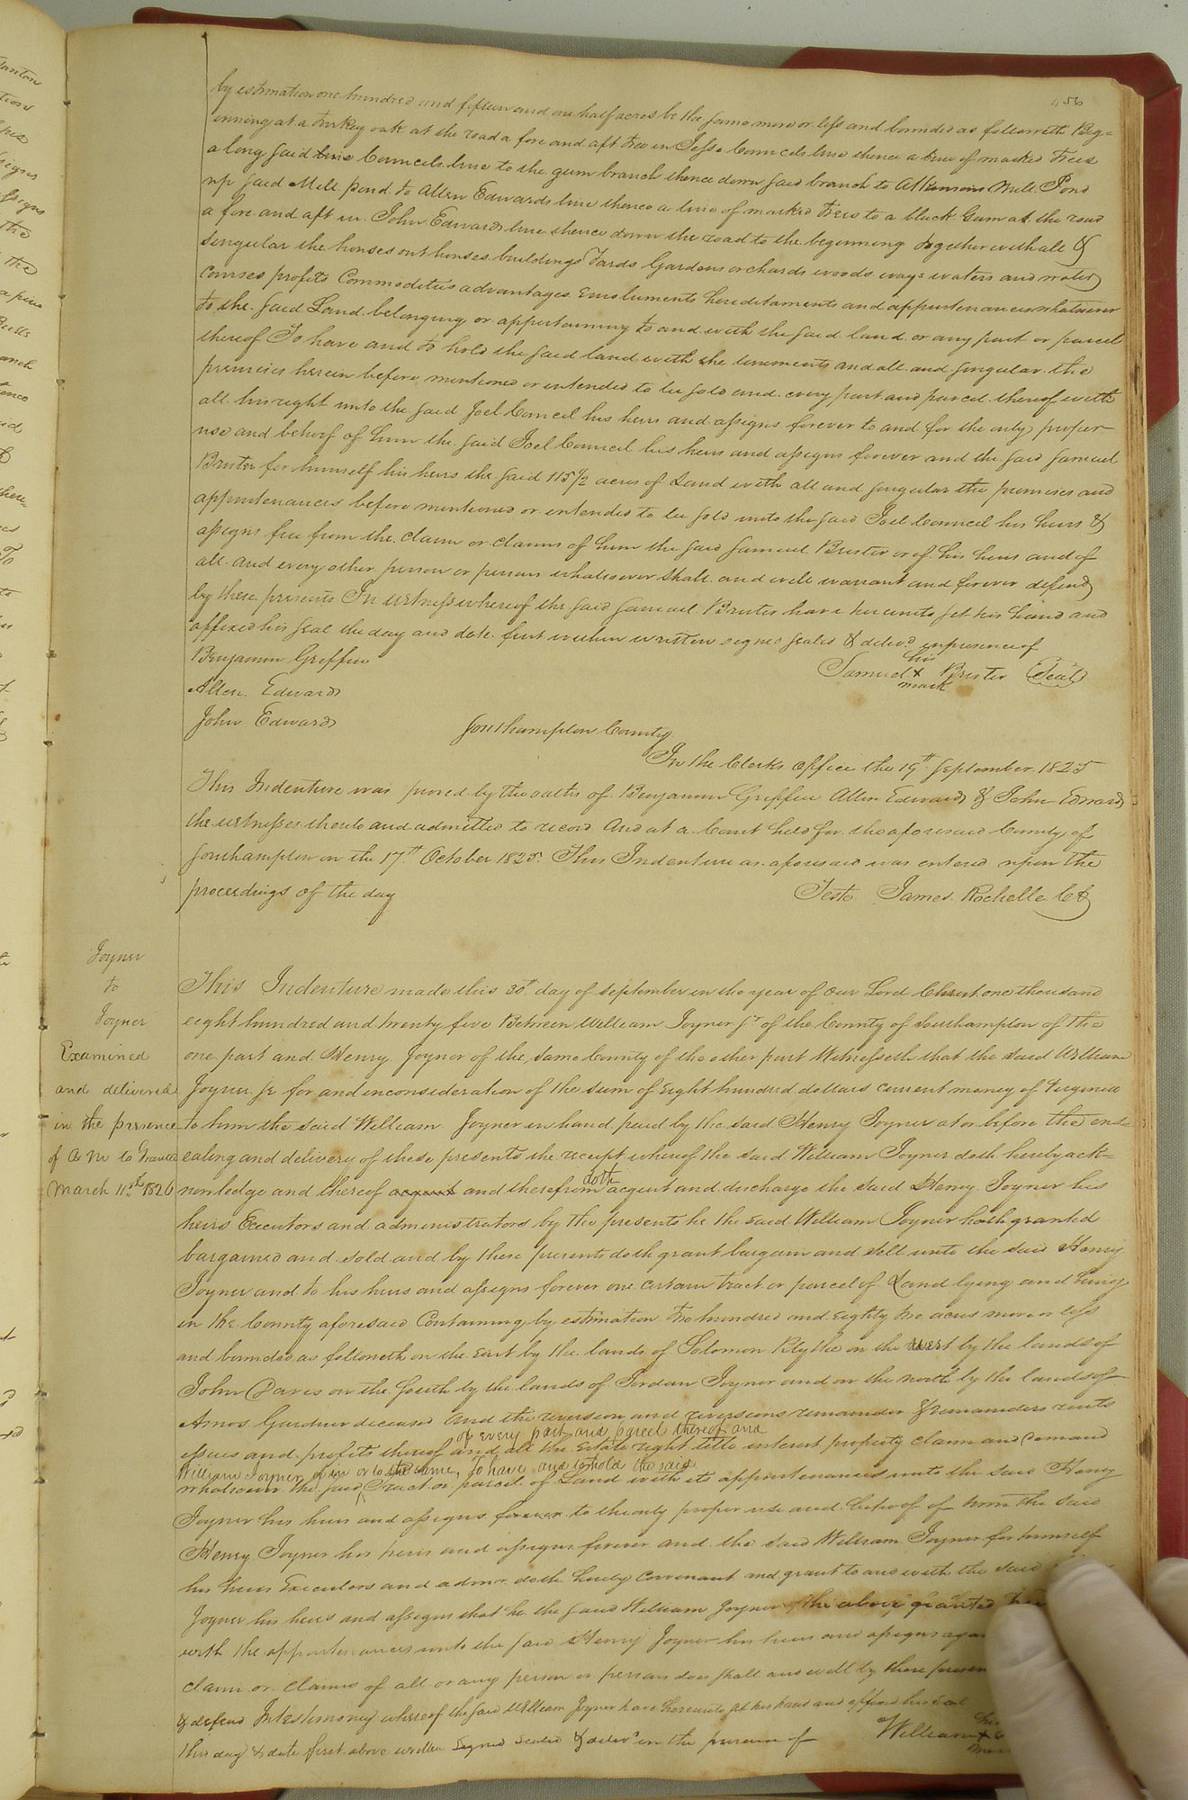 456
by estimation one hundred and fifteen and one half acres be the same more or less and bounded as followeth Beg=
inning at a turkey oak at the road a fore and aft tree in Jesse Councils line thence a line of marked trees
along said line Councils line to the gum branch thence down said branch to Atkinsons Mill Pond
up said Mill pond to Allen Edwards line thence a line of marked trees to a black Gum at the road
a fore and aft in John Edwards line thence down the road to the beginning together with all &
singular the houses out houses buildings Yards Gardens orchards woods ways waters and water
courses profits Commodities advantages Emoluments hereditaments and appurtenances whatsoever
to the said Land belonging or appertaining to and with the said land or any part or parcel
thereof To have and to hold the said land with the tenements and all and singular the
premises herein before mentioned or intended to be sold and every part and parcel thereof with
all his right unto the said Joel Council his heirs and assigns forever to and for the only proper
use and behoof of him the said Joel Council his heirs and assigns forever and the said Samuel
Brister for himself his heirs the said 115 1/2 acres of Land with all and singular the premises and
appurtenances before mentioned or intended to be sold unto the said Joel Council his heirs &
assigns free from the claim or claims of him the said Samuel Brister or of his heirs and of
all and every other person or persons whatsoever shall and will warrant and forever defend
by these presents In witness whereof the said Samuel Brister have hereunto set his hand and
affixed his seal the day and date first within written signed sealed & delivd. in presence of
Benjamin Griffin
his
Samuel X Brister (Seal)
mark
Allen Edwards
John Edwards
Southampton County
In the Clerks office the 19th September 1825
This Indenture was proved by the oaths of Benjamin Griffin Allen Edwards & John Edwards
the witnesses thereto and admitted to record And at a Court held for the aforesaid County of
Southampton on the 17th October 1825. This Indenture as aforesaid was entered upon the
proceedings of the day
Teste James Rochelle CC
Joyner
to
Joyner
Examined
and delivered
in the presence
of
March 11th 1826
This Indenture made this 30th day of September in the year of our Lord Christ one thousand
eight hundred and twenty five Between William Joyner Jr of the County of Southampton of the
one part and Henry Joyner of the same County of the other part Witnesseth that the said William
Joyner Jr for and in consideration of the sum of Eight hundred dollars current money of Virginia
to him the said William Joyner in hand paid by the said Henry Joyner at or before the ens=
ealing and delivery of these presents the receipt whereof the said William Joyner doth hereby ack=
nowledge and thereof acquit and therefrom doth acquit and discharge the said Henry Joyner his
heirs Executors and administrators by the presents he the said William Joyner hath granted
bargained and sold and by these presents doth grant bargain and sell unto the said Henry
Joyner and to his heirs and assigns forever one certain tract or parcel of Land lying and being
in the County aforesaid Containing by estimation two hundred and Eighty two acres more or less
and bounded as followeth on the East by the lands of Solomon Blythe on the West by the lands of
John Davis on the South by the lands of Jordan Joyner and on the north by the lands of
Amos Gardner deceased And the reversion and reversions remainder & remainders rents
of every part and parcel thereof and
issues and profits thereof and all the Estate right title interest property claim and Demand
William Joyner of in or to the same, To have and to hold the said
whatsoever the said Tract or parcel of Land with its appurtenances unto the said Henry
Joyner his heirs and assigns forever to the only proper use and behoof of him the said
Henry Joyner his heirs and assigns forever and the said William Joyner for himself
his heirs Executors and admrs doth hereby Covenant and grant to and with the said
Joyner his heirs and assigns that he the said William Joyner the above granted
with the appurtenances unto the said Henry Joyner his heirs and assigns
claim or claims of all or any person or persons does shall and will by these presen
& defend In testimony whereof the said William Joyner have hereunto set his hand and affixed his seal
this day & date first above written Signed sealed & delivd in the presence of
his
William X